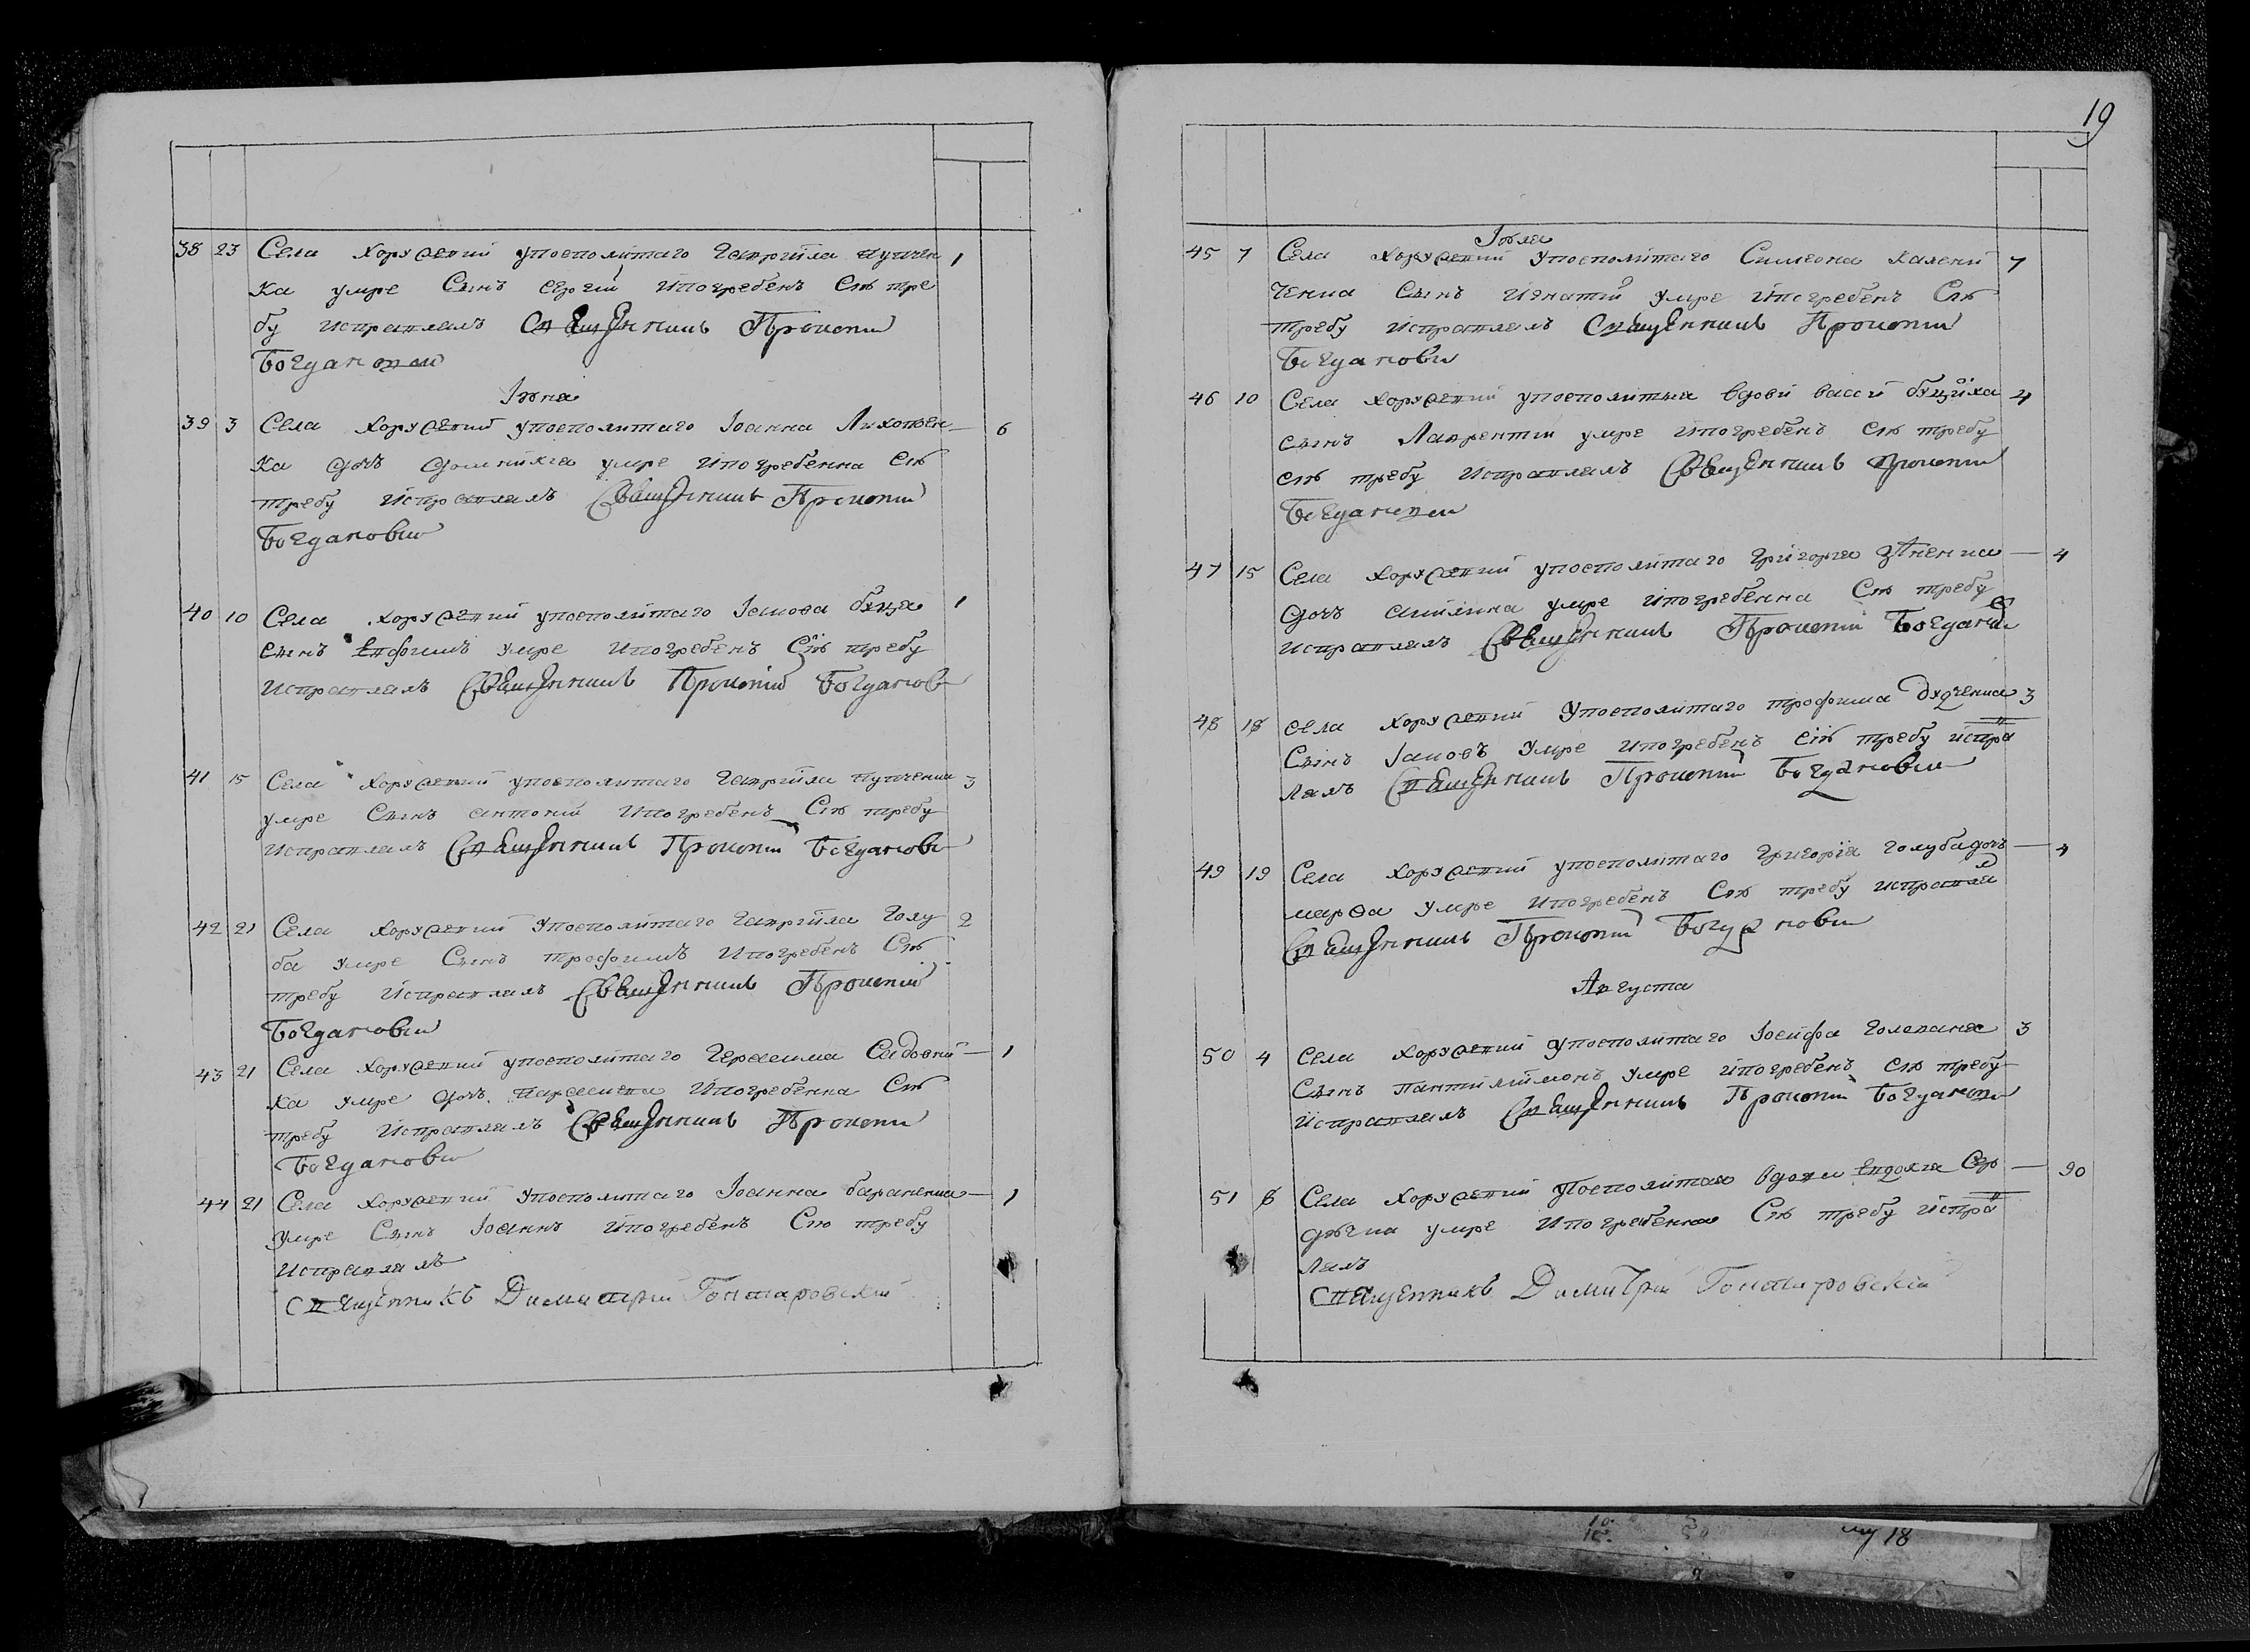 38 23 Села Хоружевки упосполитаго Гавриила Путчен 1
ка умре Сынъ Сергий ипогребенъ Сию тре
бу исправлялъ Священникъ Прокопий
Богданович
Июня
39 3 Села Хоружевки упосполитаго Иоанна — 6
ка дочь Домникия умре ипогребенна Сию
требу исправлялъ Священникъ Прокопий
Богданович
40 10 Села Хоружевки упосполитаго Иакова Буця 1
Сынъ Евфимъ умре ипогребенъ Сию требу
исправлялъ Священникъ Прокопий Богданов
41 15 Села Хоружевки упосполитаго Гавриила Путченка 3
умре Сынъ Антоний ипогребенъ Сию требу
исправлялъ Священникъ Прокопий Богданови
42 21 Села Хоружевки упосполитаго Гавриила Голу 2
ба умре Сынъ Трофимъ ипогребенъ Сию
требу исправлялъ Священникъ Прокопий
Богданович
43 21 Села Хоружевки упосполитаго Герасима Садовни — 1
ка умре дочь Параскева ипогребенна Сию
требу исправлялъ Священникъ Прокопий
Богданович
44 21 Села Хоружевки упосполитаго Иоанна Бараненка — 1
умре Сынъ Иоаннъ ипогребенъ Сию требу
исправлялъ
Священникъ Димитрий Гонтаровский
19
Июля
45 7 Села Хоружевки упосполитаго Симеона Калени 7
ченка Сынъ Игнатий умре ипогребенъ Сию
требу исправлялъ Священникъ Прокопий
Богданович
46 10 Села Хоружевки упосполитыя вдови Васси Буцийка 4
Сынъ Лаврентий умре ипогребенъ Сию требу
сию требу исправлялъ Священникъ Прокопий
Богданович
47 15 Села Хоружевки упосполитаго Григория — 4
дочь Акилина умре ипогребенна Сию требу
исправлялъ Священникъ Прокопий Богданов
48 18 Села Хоружевки упосполитаго Трофима Дудченка 3
Сынъ Иаковъ умре ипогребенъ сию требу исправ
лялъ Священникъ Прокопий Богданович
49 19 Села Хоружевки упосполитаго Григорїя Голуба дочь — 4
Марѳа умре ипогребенъ Сию требу исправля
Священникъ Прокопий Богданович
Августа
50 4 Села Хоружевки упосполитаго Иосифа Голопаня 3
Сынъ Пантилимонъ умре ипогребенъ сию требу
исправлялъ Священникъ Прокопий Богданови
51 8 Села Хоружевки посполитая вдова Евдокия Сер — 90
дючка умре ипогребенна Сию требу исправ
лялъ
Священникъ Димитрий Гонтаровский
10.
18